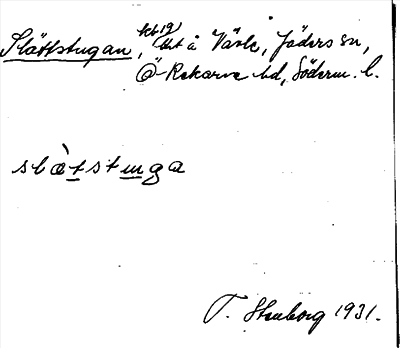 Slättstugan, tkt 19/ Utst å Väsle, Jäders sn,
Ö-Rekarne hd, Söderm. l.
slàtstuga
T. Stenborg 1931.